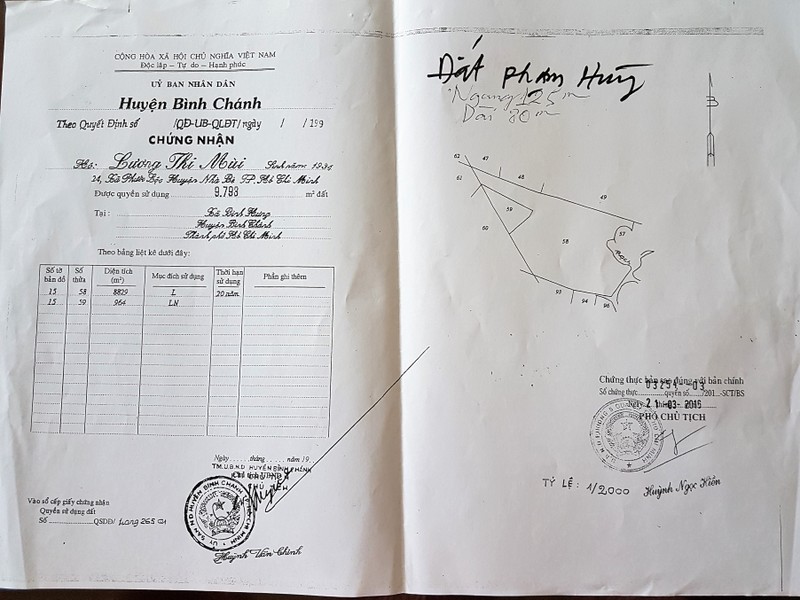 CỘNG HÒA XÃ HỘI CHỦ NGHĨA VIỆT NAM
Độc lập – Tự do – Hạnh phúc
UỶ BAN NHÂN DÂN
Huyện Bình Chánh
Theo Quyết Định số /QĐ-UB-QLĐT/ ngày / /199
CHỨNG NHẬN
Lương Thị Mùi Sinh năm 193
24, Xã Phước Lộc Huyện Nhà Bè TP. Hồ Chí Minh
Được quyền sử dụng 9.793 m² đất
Tại : Xã Bình Hưng
Huyện Bình Chánh
Thành phố Hồ Chí Minh
Theo bảng liệt kê dưới đây:
Số tờ bản đồ Số thửa Diện tích (m²) Mục đích sử dụng Thời hạn sử dụng Phần ghi thêm
15 58 8829 L 20 năm
15 59 964 LN
Ngày ...... tháng ...... năm 19
TM.U.B.N.D HUYỆN BÌNH CHÁNH
Vào sổ cấp giấy chứng nhận
Quyền sử dụng đất
Số ............ QSDĐ/ trang 265
Huỳnh Văn Chính
Đất phạm Hùng
Ngang 125 m
Dài 80 m
62 47 48 49
62 59 57
60 58
93 94 96
Chứng thực bản sao đúng với bản chính
03251 -03
Số chứng thực............quyển số....../201...-SCT/BS
21 -03- 2016
PHÓ CHỦ TỊCH
TỶ LỆ : 1/2000
Huỳnh Ngọc Hiền